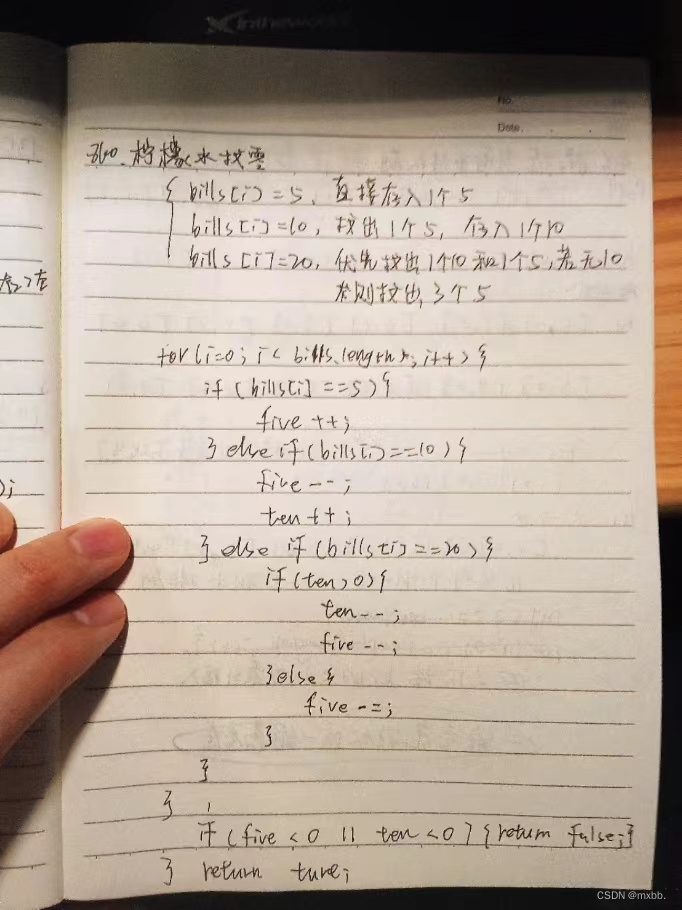 No.
Date.
860.柠檬水找零
{ bills[i]=5,直接存入1个5
bills[i]=10,找出1个5,存入1个10
bills[i]=20,优先找出1个10和1个5,若无10
则找出3个5
for(i=0;i<bills.length;i++){
if(bills[i]==5){
five++;
}else if(bills[i]==10){
five--;
ten++;
}else if(bills[i]==20){
if(ten>0){
ten--;
five--;
}else{
five-=;
}
}
}
if(five<0||ten<0){return false;}
} return ture;
CSDN @mxbb.